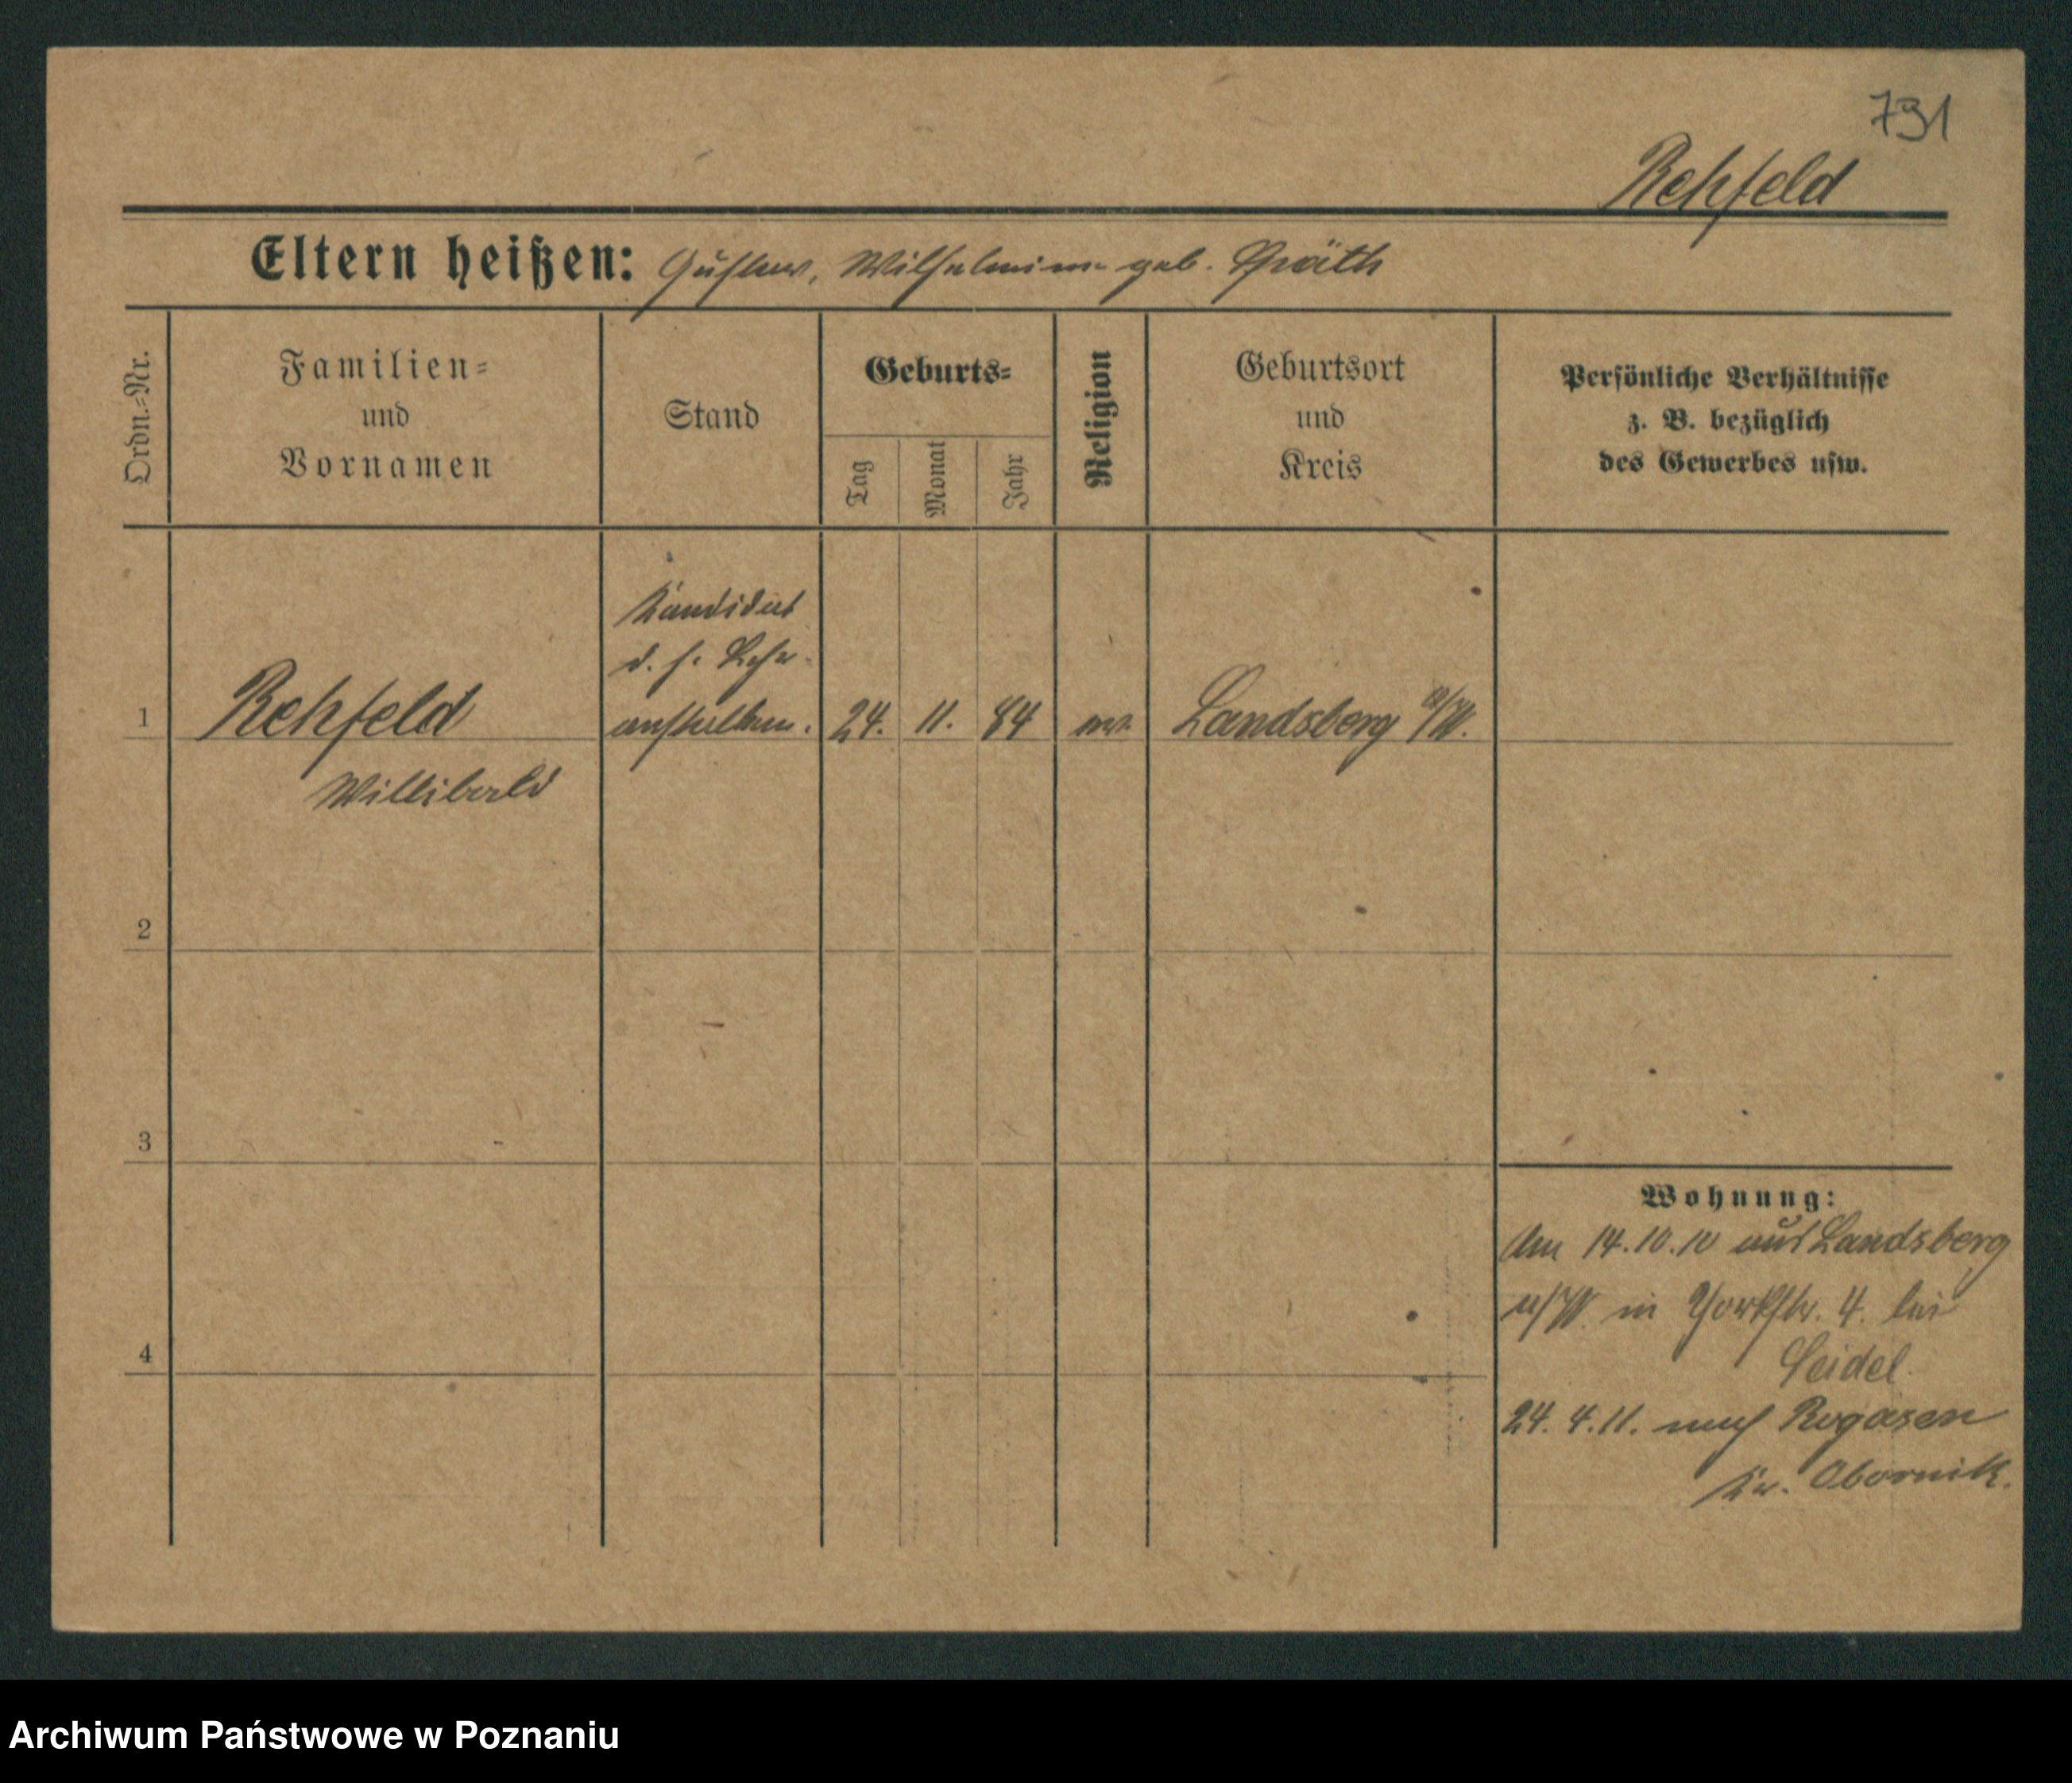 791
Rehfeld
Eltern heißen: Gustav, Wilhelmine geb. Späth
Ordn.-Nr.
Familien-
und
Vornamen
Stand
Geburts-
Tag
Monat
Jahr
Religion
Geburtsort
und
Kreis
Persönliche Verhältnisse
z. B. bezüglich
des Gewerbes usw.
Kandidat
d. h. Lehr-
anstalten.
1 Rehfeld 24. 11. 84 ev. Landsberg a/W.
Willibald
2
3
4
Wohnung:
Am 14.10.10 aus Landsberg
a/W. in Yorkstr. 4. bei
Seidel
24. 4. 11. nach Rogasen
Kr. Obornik.
Archiwum Państwowe w Poznaniu